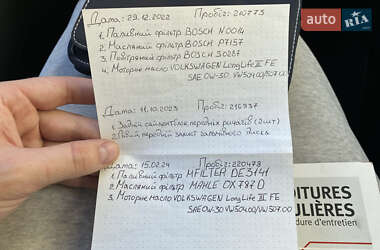 AUTO RIA
Дата: 29.12.2022 Пробіг: 210773
1. Паливний фільтр BOSCH N0014
2. Масляний фільтр BOSCH P7157
3. Повітряний фільтр BOSCH S0287
4. Моторне масло VOLKSWAGEN LongLife III FE
SAE 0W-30 VW504.00/507.00
Дата: 11.10.2023 Пробіг: 216937
1. Задній сайлентблок передніх ричагів (2шт)
2. Лівий передній захист гальмівного диска
Дата: 15.02.24 Пробіг: 220478
1. Паливний фільтр MFILTER DE3141
2. Масляний фільтр MAHLE OX787D
3. Моторне масло VOLKSWAGEN LongLife III FE
SAE 0W-30 VW504.00/VW507.00
OITURES
ULIÈRES
dure d'entretien